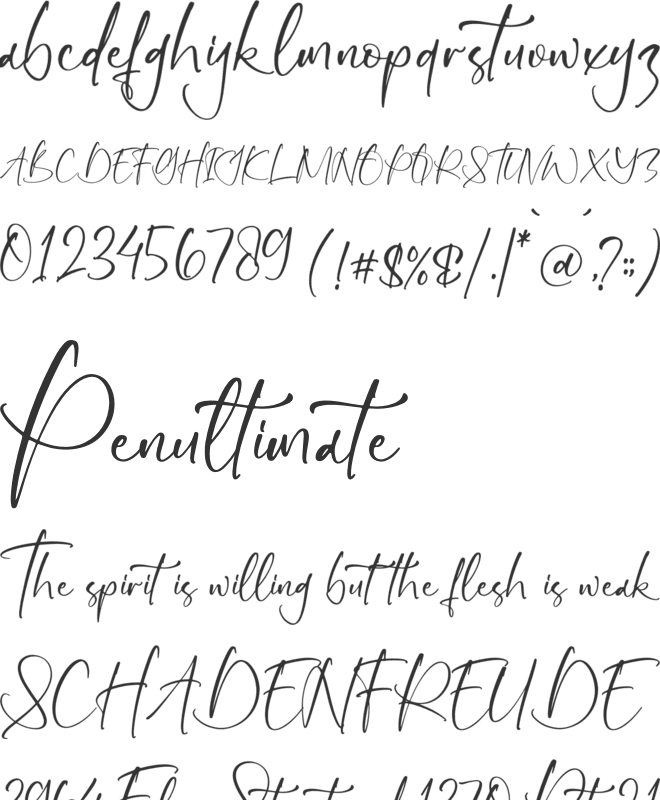 abcdefghijklmnopqrstuvwxyz
ABCDEFGHIJKLMNOPQRSTUVWXYZ
0123456789 (!#$%&/.|*`@´,?:;)
Penultimate
The spirit is willing but the flesh is weak
SCHADENFREUDE